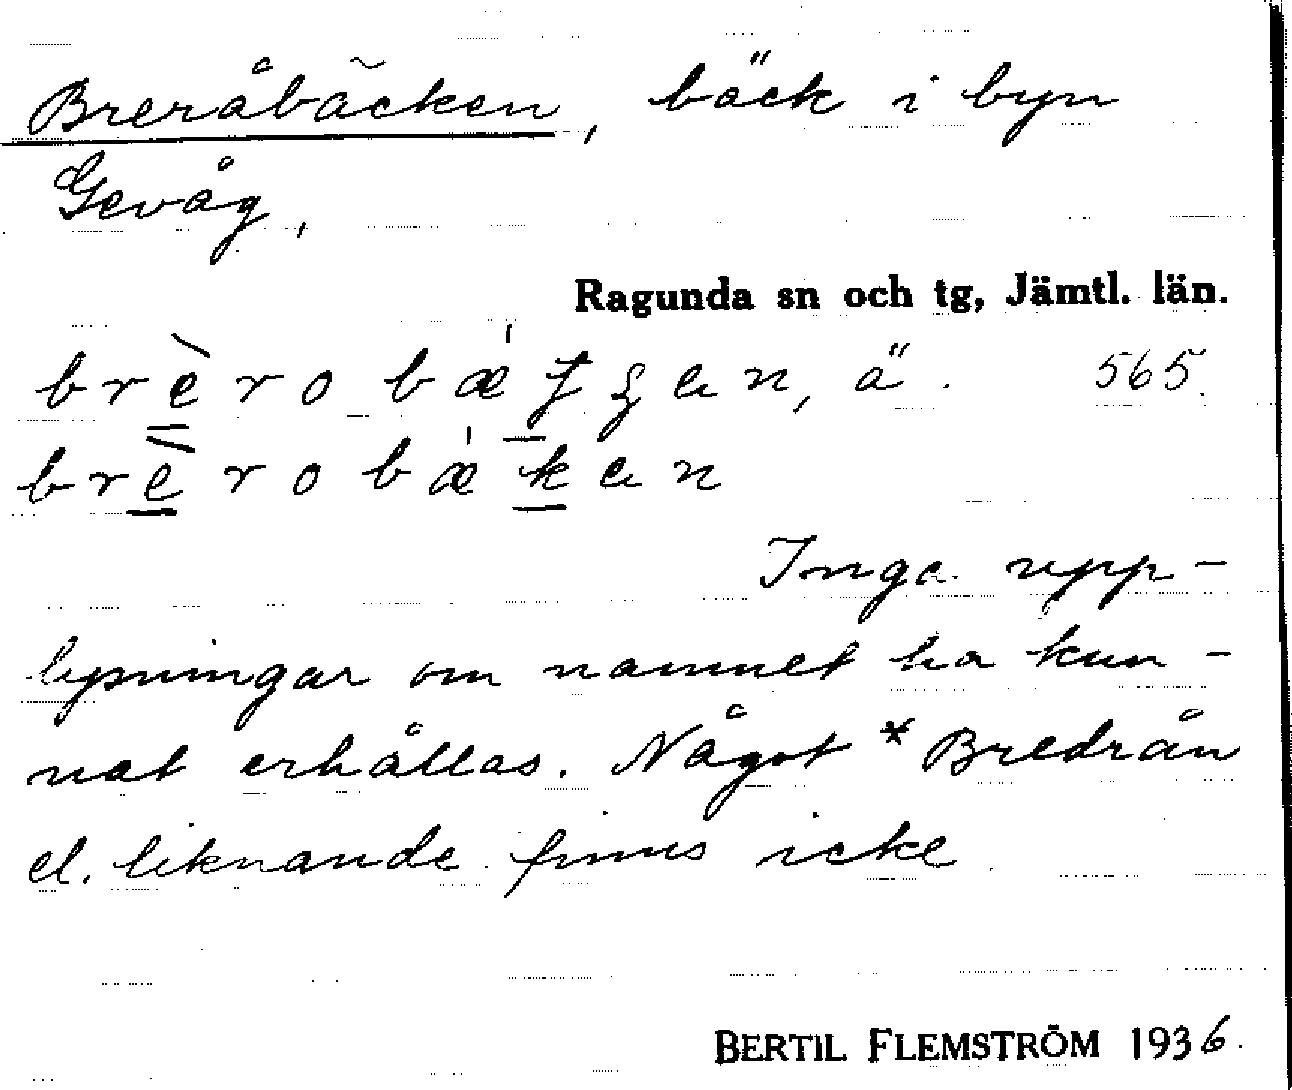 Breråbäcken, bäck i byn
Gevåg,
Ragunda sn och tg, Jämtl. län.
ä. 565.
Inga upp-
lysningar om namnet ha kun-
nat erhållas. Något *Bredrån
el. liknande finns icke
BERTIL FLEMSTRÖM 1936.